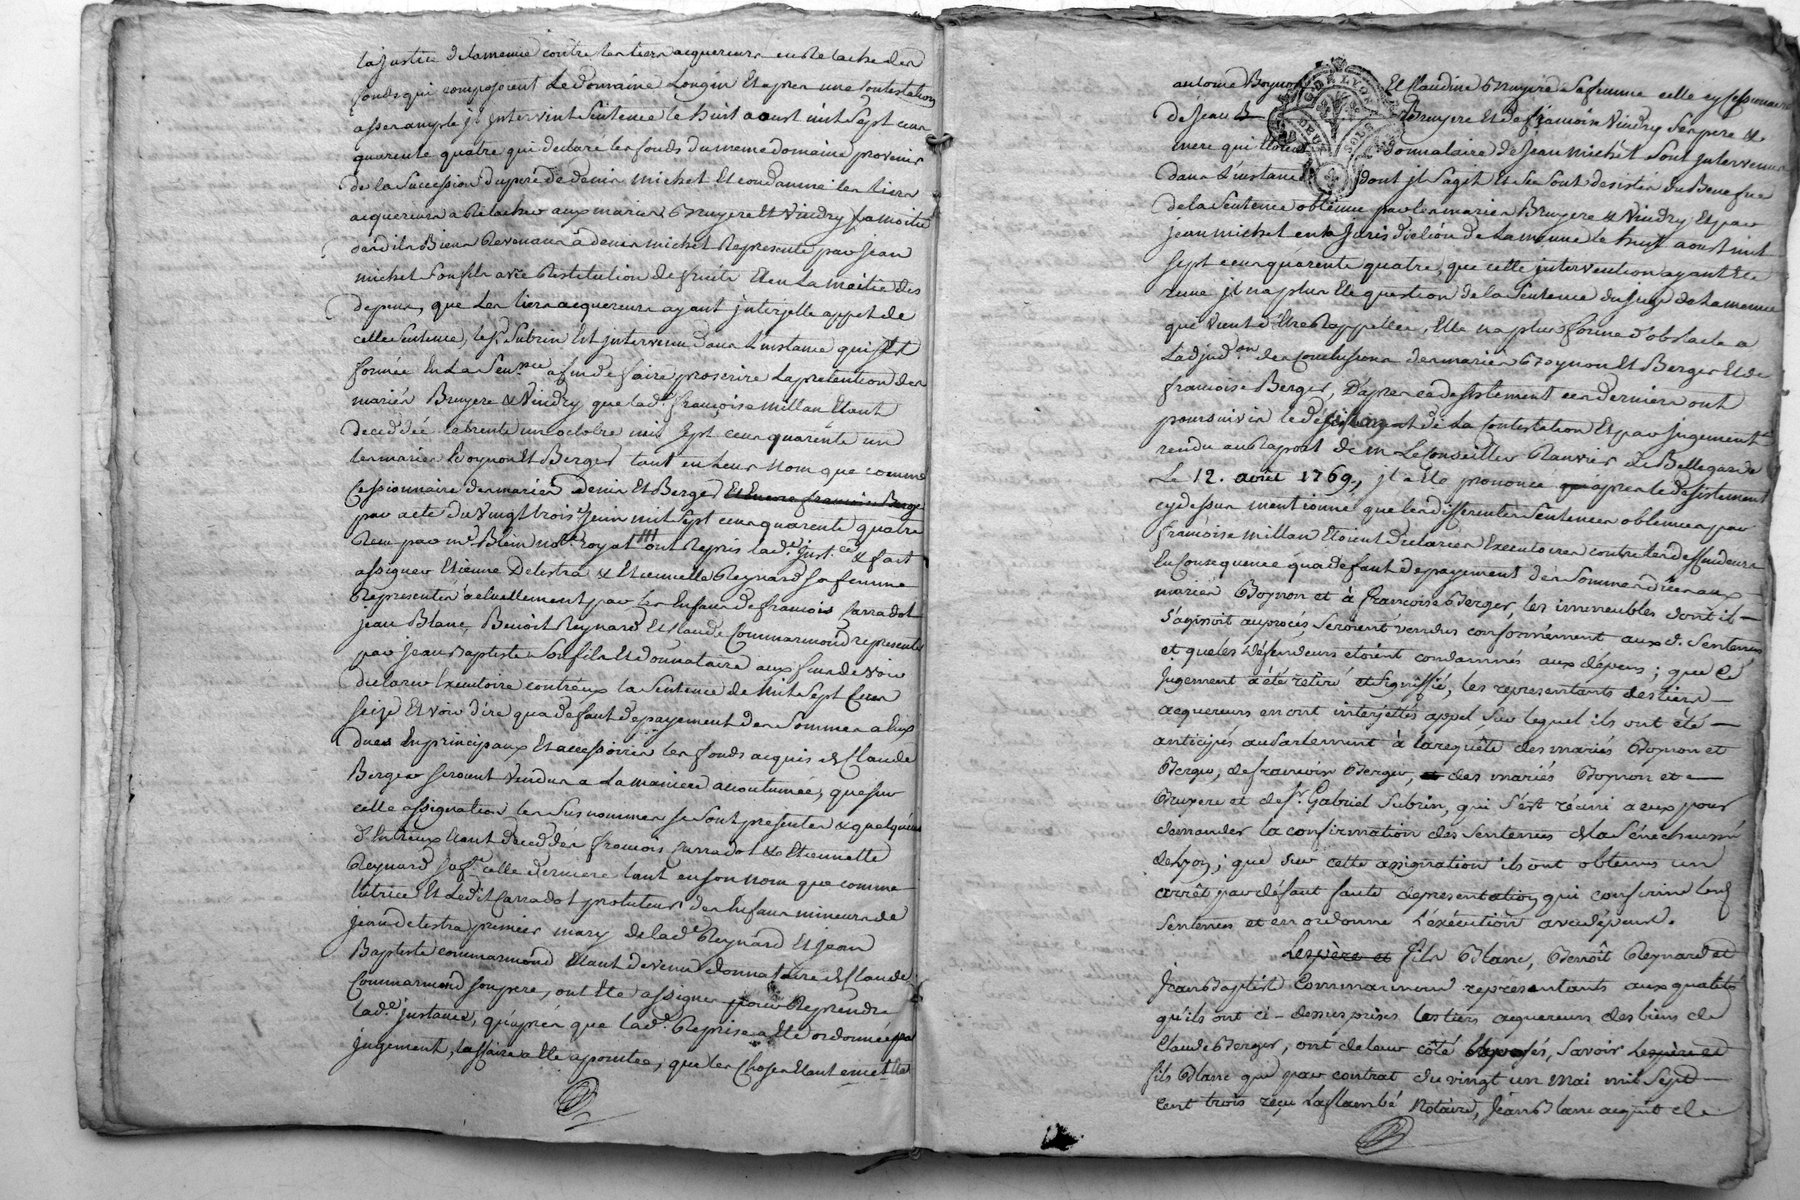 la justice de lamenue contre les tiers acquereurs en relache des
fonds qui composoient le domaine Longin Et apres une Contestation
asses ample il intervint Sentence le huit aoust mil sept cens
quarente quatre qui declare les fonds du meme domaine provenir
de la Succession du pere de denis michet Et condamne les tiers
acquereurs a relacher aux mariés Bruyere Et Vindry la moitié
desdits Biens Revenans a denis michet Represente par Jean
michet son fils avec Restitution de fruits Et en la moitié des
depens, que les tiers acquereurs ayant interjette appel de
cette Sentence, le Sr. Subrin Est intervenu dans l'instance qui s'est
formée En la Sen.ssée afin de faire proscrire la pretention des
mariés Bruyere & Vindry que lad.e françoise millan Etant
deceddée le trente un octobre mil Sept cens quarente un
les mariés Boynon Et Berger tant en leurs nom que comme
Cessionnaire des mariés denis Et Berger
par acte du vingt trois Juin mil sept cens quarente quatre
Recu par me. Blein not.re royal ont Repris lad.e Inst.ce & fait
assigner Etienne Delestra & Etiennette Reynard sa femme
Representés actuellement par les Enfans de francois Carradot
jean Blanc, Benoit Reynard Et Claude Commarmond representé
par Jean Baptiste Son fils Et donnataire aux fins de voir
declarer Executoire contre eux la Sentence de mil Sept Cens
seize Et voir dire qua defaut de payement des Sommes a Eux
dues En principaux Et accessoires les fonds acquis de Claude
Berger seroient Vendus a La maniere accoutumée, que sur
cette assignation les Susnommés se sont presentés & quelqu'uns
d'Entreux Etant deceddés francois Carradot & Etiennette
Reynard sa f.e cette derniere tant en son nom que comme
tutrice Et Ledit Carradot protuteur des Enfans mineurs de
jean delestra premier mary de lad.e Reynard Et jean
Baptiste commarmond Etant devenu donnataire de Claude
Commarmond son pere, ont Ete assignés pour Reprendre
lad.e instance, qu'apres que lad.e Reprise a Ete ordonnée par
jugement, l'affaire a Ete apointée, que les choses Etant en cet Etat
antoine Boynon Et Claudine Bruyere Sa femme celle cy cessionnaire
de Jean B Bruyere Et de françoise Vindry Ses pere &
mere qui Etoient donnataire de Jean michet Sont intervenus
dans l'instance dont il Sagit Et Se Sont desistés du Benefice
de la Sentence obtenue par les mariés Bruyere & Vindry Et par
jean michet en la Jurisdiction de Lamenue le huit aoust mil
sept cens quarente quatre, que cette intervention ayant Ete
recue il na plus Ete question de la Sentence du juge de Lamenue
que vient d'Etre Rappellée, Elle na plus forme d'obstacle a
Ladjud.on des Conclusions des mariés Boynon Et Berger Et de
françoise Berger, D'apres ce desistement ces derniers ont
poursuivis le de de La Contestation Et par jugement
rendu au Raport de m. Le Conseiller Ranvier de Bellegarde
Le 12. août 1769, il a Ete prononcé apres le desistement
cy dessus mentionné que les differentes Sentences obtenues par
françoise millan Etoient declarées Executoires contre les deffendeurs
En Consequence qua defaut de payement des Sommes dües aux
mariés Boynon et à françoise Berger, les immeubles dont il
s'agissoit au procès, seroient vendus conformément aux d. Sentences
et que les Défendeurs etoient condamnés aux dépens ; que ce
Jugement a été retiré et signiffié, les representants des tiers
acquereurs en ont interjettés appel sur lequel ils ont été
anticipés au Parlement à la requête des mariés Boynon et
Berger, de francoise Berger, des mariés Boynon et
Bruyere et de Sr. Gabriel Subrin, qui s'est réuni a eux pour
demander la confirmation des sentences de la Sénéchaussée
de Lyon ; que sur cette assignation ils ont obtenus un
arrêt par défaut faute de presentation qui confirme les d.
Sentences et en ordonne l'exécution avec dépens.
Les père et fils Blanc, Benoît Reynard et
Jean Baptiste Commarmond représentants aux qualités
qu'ils ont ci-dessus prises les tiers acquereurs des biens de
Claude Berger, ont de leur côté exposés, savoir Les père et
fils Blanc que par contrat du vingt un mai mil Sept
cent trois reçu Laflambé Notaire, Jean Blanc acquit de
G. DE LYON
DEUX SOLS